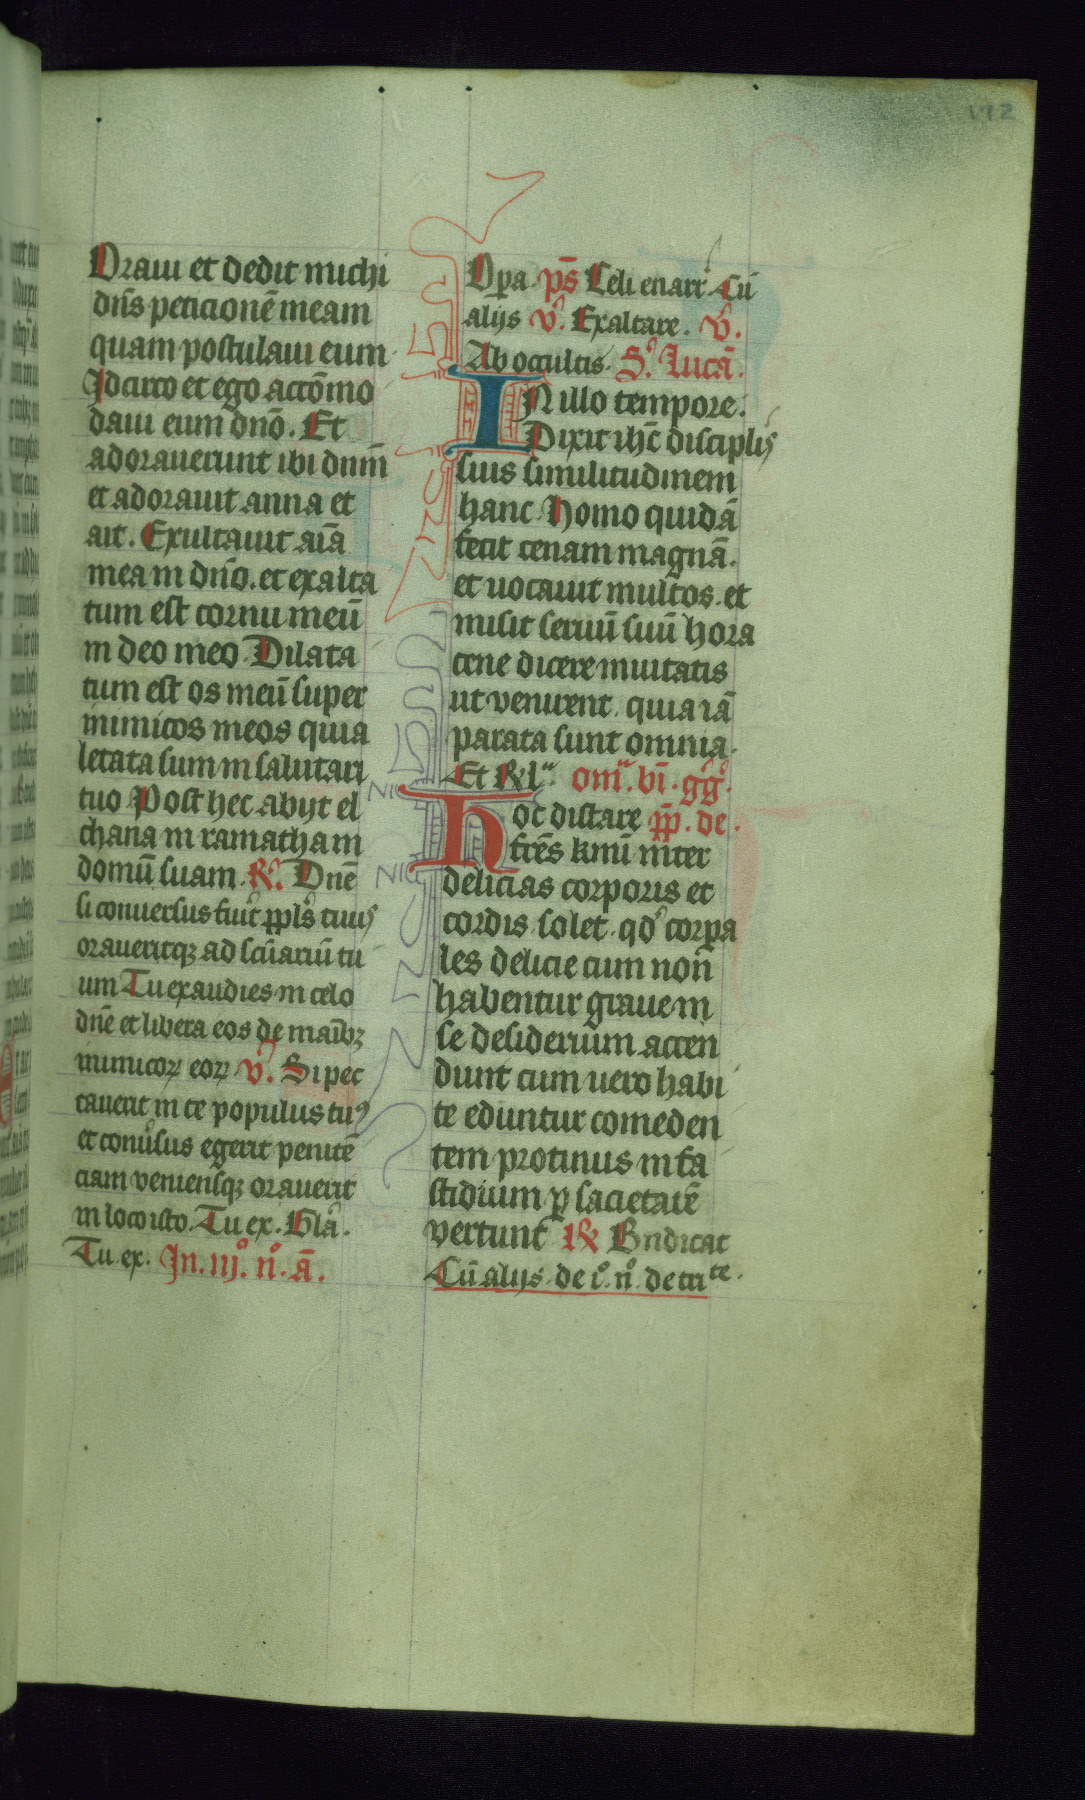 172
Oraui et dedit michi
dn̄s peticionē meam
quam postulaui eum
Idcirco et ego accōmo
daui eum dn̄o. Et
adorauerunt ibi dn̄m
et adorauit anna et
ait. Exultauit aīa
mea in dn̄o. et exalta
tum est cornu meū
in deo meo Dilata
tum est os meū super
inimicos meos quia
letata sum in salutari
tuo Post hec abijt el
chana in ramatham
domū suam. R̷. Dn̄e
si conuersus fuit̾ ppl̄s tuus
oraueritqꝫ ad sc̄uariū tu
um Tu exaudies in celo
dn̄e et libera eos de manibꝫ
inimicoꝝ eoꝝ v̾. Si pec
cauerit in te populus tuꝰ
et conu̾sus egerit penitē
ciam veniensqꝫ orauerit
in loco isto. Tu ex. Gl̄a.
Tu ex. In. iijͦ. nͦ. ā.
Oꝑa ps̄ Celi enarr̾ Cū
alijs v̾. Exaltare. v̾.
Ab occultis. S̾. Lucā.
IN illo tempore.
Dixit ih̄c discipl̾is
suis similitudinem
hanc Homo quidā
fecit cenam magnā.
et uocauit multos. et
misit seruū suū hora
cene dicere inuitatis
ut venirent. quia iā
parata sunt omnia.
Et rel̾ om̾. bī. gg̾.
Hoc distare pp̄. de.
fr̄es kmī inter
delicias corporis et
cordis solet. qd̾ corꝑa
les delicie cum non
habentur graue in
se desiderium accen
dunt cum uero habi
te eduntur comeden
tem protinus in fa
stidium ꝑ sacietatē
vertunt R̷ Bndicat
Cū alijs. de iͦ. nͦ. de tri te.